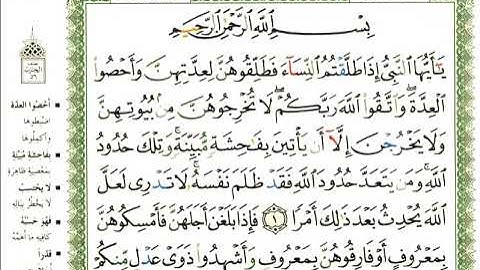 بِسْمِ ٱللَّهِ ٱلرَّحْمَٰنِ ٱلرَّحِيمِ
يَٰٓأَيُّهَا ٱلنَّبِيُّ إِذَا طَلَّقْتُمُ ٱلنِّسَآءَ فَطَلِّقُوهُنَّ لِعِدَّتِهِنَّ وَأَحْصُوا۟
ٱلْعِدَّةَ ۖ وَٱتَّقُوا۟ ٱللَّهَ رَبَّكُمْ ۖ لَا تُخْرِجُوهُنَّ مِنۢ بُيُوتِهِنَّ
وَلَا يَخْرُجْنَ إِلَّآ أَن يَأْتِينَ بِفَٰحِشَةٍ مُّبَيِّنَةٍ ۚ وَتِلْكَ حُدُودُ
ٱللَّهِ ۚ وَمَن يَتَعَدَّ حُدُودَ ٱللَّهِ فَقَدْ ظَلَمَ نَفْسَهُۥ ۚ لَا تَدْرِى لَعَلَّ
ٱللَّهَ يُحْدِثُ بَعْدَ ذَٰلِكَ أَمْرًا ١ فَإِذَا بَلَغْنَ أَجَلَهُنَّ فَأَمْسِكُوهُنَّ
بِمَعْرُوفٍ أَوْ فَارِقُوهُنَّ بِمَعْرُوفٍ وَأَشْهِدُوا۟ ذَوَىْ عَدْلٍ مِّنكُمْ
أحصوا العدة
اضبطوها
وأكملوها
بفاحشة مبينة
بمعصية ظاهرة
لا يحتسب
لا يخطر بباله
فهو حسبه
كافيه ما أهمه
قدرا